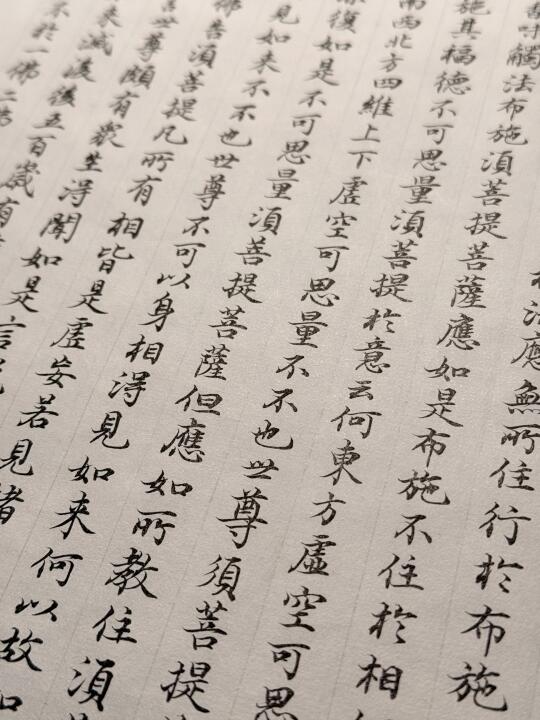 法應無所住行於布施
味觸法布施須菩提菩薩應如是布施不住於相
施其福德不可思量須菩提於意云何東方虛空可思
南西北方四維上下虛空可思量不不也世尊須菩提
復如是不可思量須菩提菩薩但應如所教住須
見如来不不也世尊不可以身相得見如来何以故如
佛告須菩提凡所有相皆是虛妄若見諸
言世尊頗有眾生得聞如是言說
来滅後五百歲有
不於一佛二佛